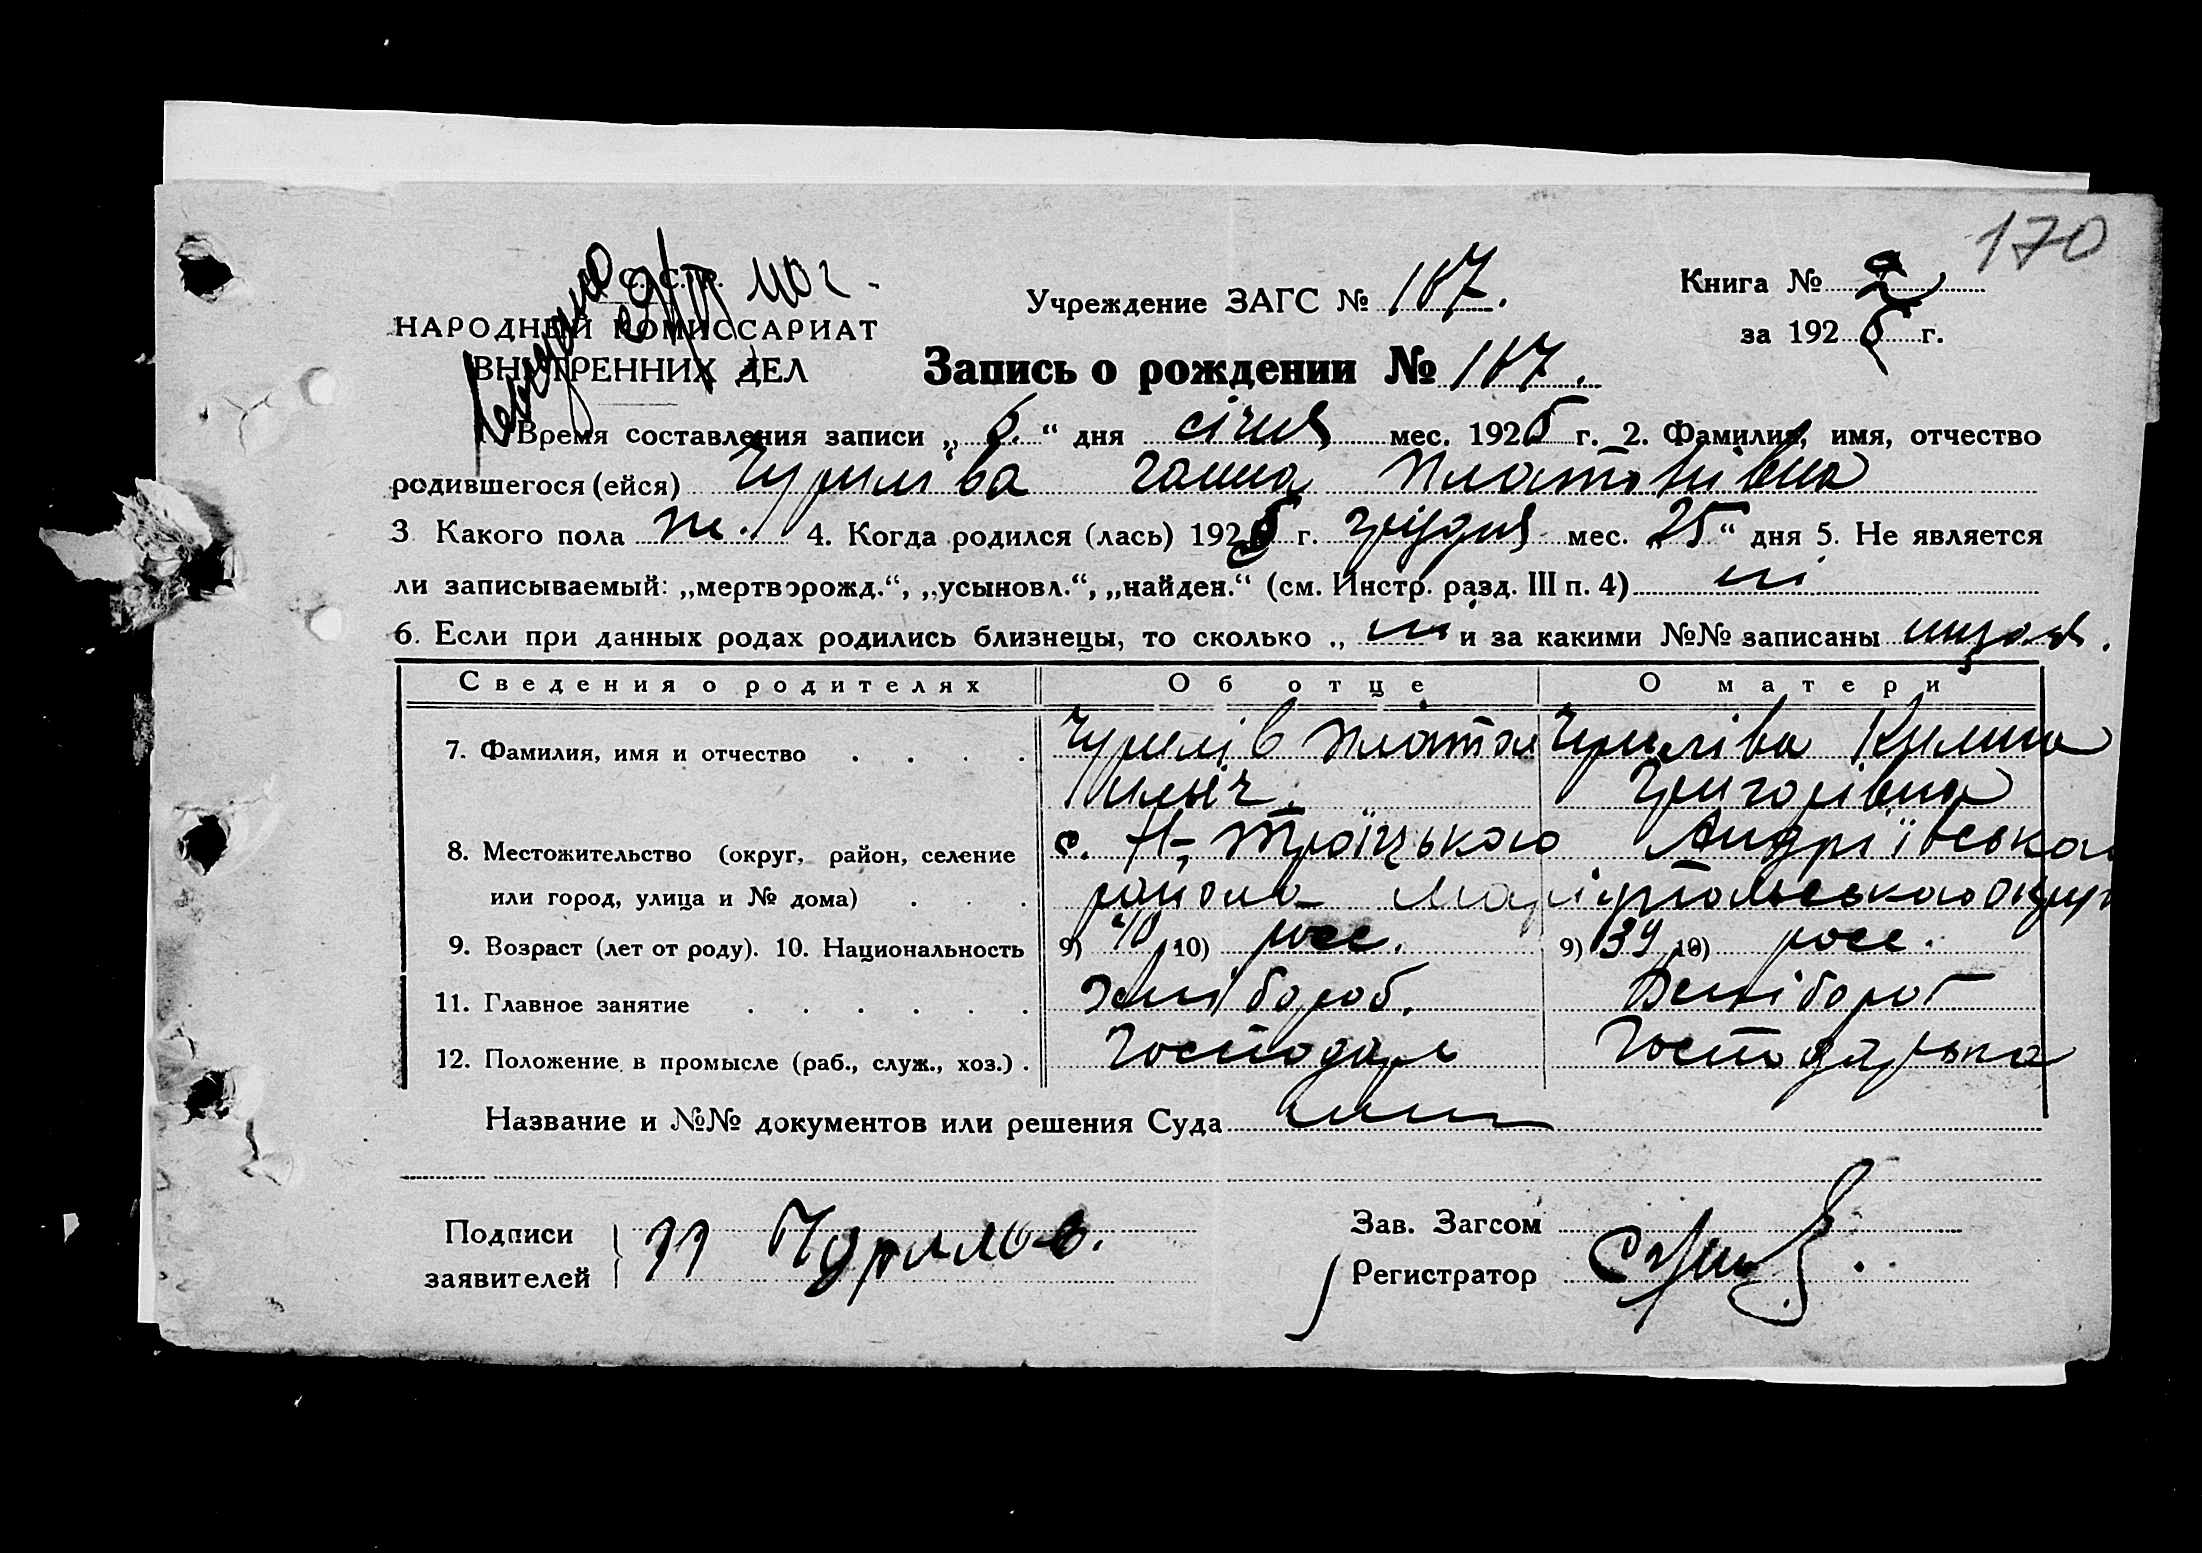 170
С.С.Р.
НАРОДНЫЙ КОМИССАРИАТ
ВНУТРЕННИХ ДЕЛ
Учреждение ЗАГС № 187.
Книга № 2
за 1925 г.
Запись о рождении № 187.
1. Время составления записи „ 6. “ дня січня мес. 1925 г. 2. Фамилия, имя, отчество
родившегося (ейся) Чурилiва Ганна Платонівна
3 Какого пола ж. 4. Когда родился (лась) 1925 г. грудня мес. „25“ дня 5. Не является
ли записываемый: „мертворожд.“, „усыновл.“, „найден.“ (см. Инстр. разд. III п. 4) ні
6. Если при данных родах родились близнецы, то сколько „ ні и за какими №№ записаны
Сведения о родителях Об отце О матери
7. Фамилия, имя и отчество . . . . Чурилів Платон Чурилiва Килина
Ильич. Григорівна
8. Местожительство (округ, район, селение с. Н-Троїцького Андріївськаго
или город, улица и № дома) . . . района Маріупольського округ
9. Возраст (лет от роду). 10. Национальность 9) 40 10) росс. 9) 39 10) росс.
11. Главное занятие . . . . . . Хлібороб. Хлібороб
12. Положение в промысле (раб., служ., хоз.) . Господарь Господарька
Название и №№ документов или решения Суда
Подписи
заявителей
Чурилов.
Зав. Загсом
Регистратор